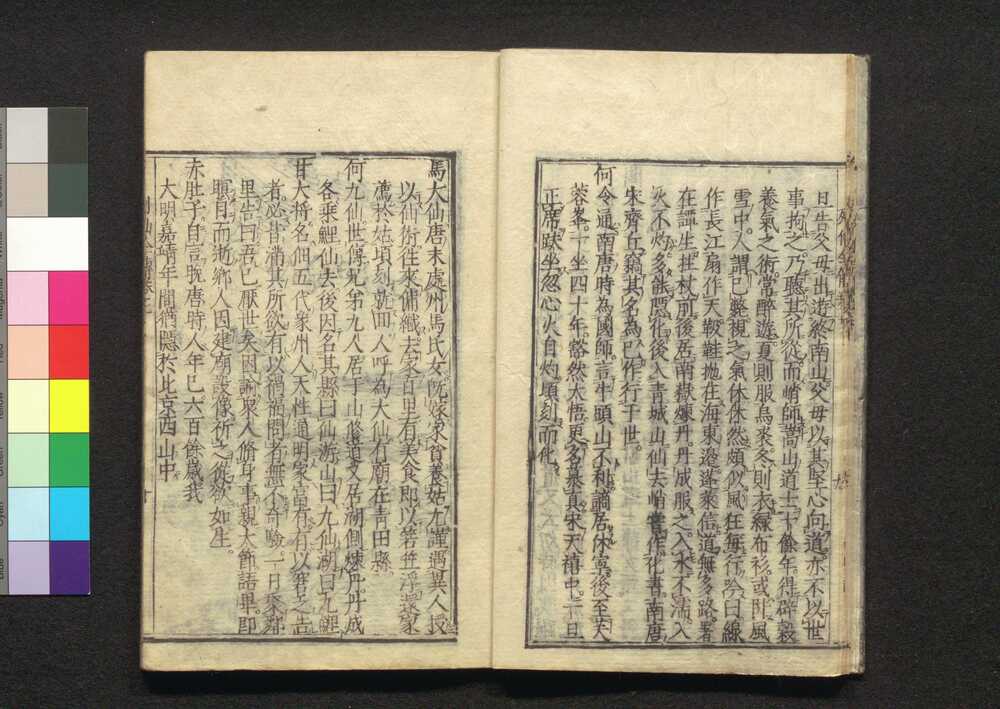 旦告父母出遊終南山父母以其堅心向道亦不以世
事拘之乃聽其所從而峭師嵩山道士十餘年得辟穀
養氣之術常醉遊夏則服烏裘冬則衣綠布衫或臥風
雪中人謂已斃視之氣休休然頗似風狂每行吟曰線
作長江扇作天靸鞋拋在海東邊蓬萊信道無多路
在譚生拄杖前後居南嶽煉丹丹成服之入水不濡入
火不灼多能隱化後入青城山仙去峭嘗作化書南唐
宋齊丘竊其名為己作行于世
何令通南唐時為國師言牛頭山不利謫居休寧後至芙
蓉峯一坐四十年豁然大悟更名慕真宋天禧中一旦
正席趺坐忽心火自灼頃刻而化
馬大仙唐末處州馬氏女既嫁家貧養姑尤謹遇異人授
以仙術往來傭織去家百里有美食即以箬笠浮還家
薦於姑頃刻就回人呼為大仙有廟在青田縣
何九仙世傳兄弟九人居于山修道又居湖側煉丹丹成
各乘鯉仙去後因名其縣曰仙游山曰九仙湖曰九鯉
甘大將名佃五代袁州人天性通明家富有有以窘乏告
者必皆滿其所欲有以禍福問者無不奇驗一日聚鄰
里告曰吾已厭世矣因諭眾人脩身事親大節語畢即
瞑目而逝鄉人因建廟設像祈之從欲如生
赤肚子自言晚唐時人年已六百餘歲我
大明嘉靖年間猶隱於北京西山中